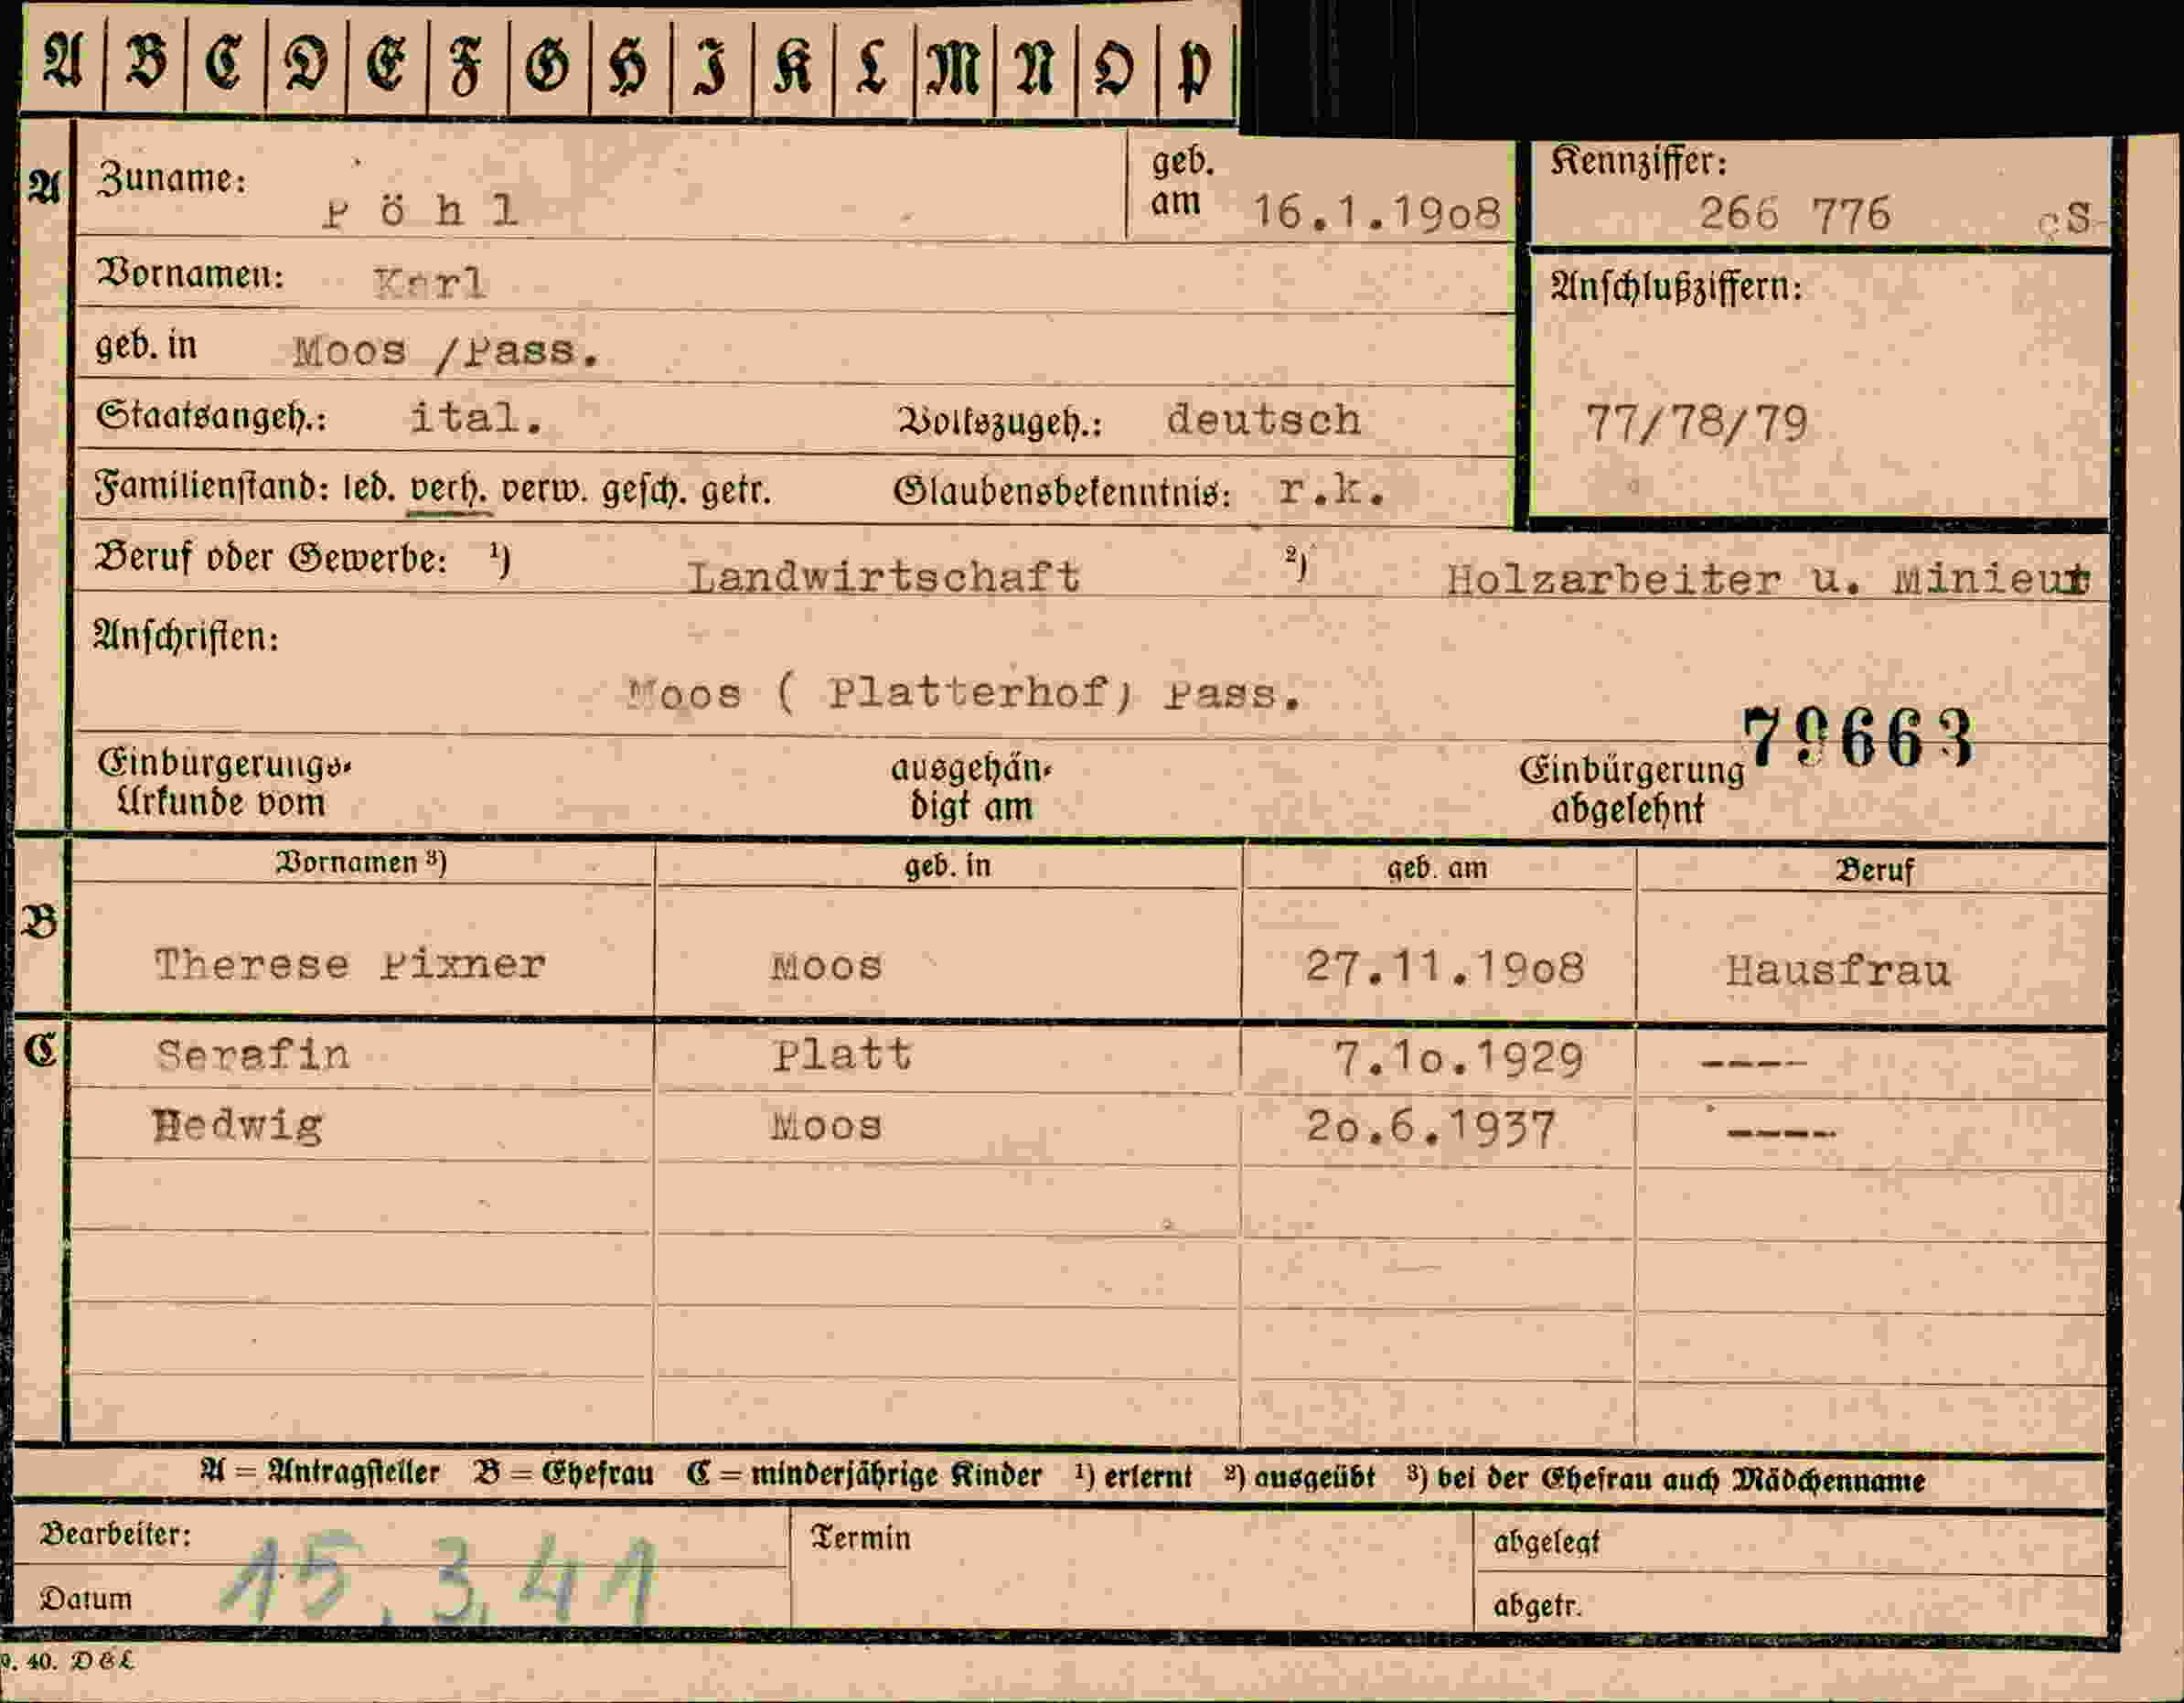 A B C D E F G H I K L M N O P
A Zuname: Pöhl geb. am 16.1.1908 Kennziffer: 266 776 cS
Vornamen: Karl Anschlußziffern:
geb. in Moos /Pass.
Staatsangeh.: ital. Volkszugeh.: deutsch 77/78/79
Familienstand: led. verh. verw. gesch. getr. Glaubensbekenntnis: r.k.
Beruf oder Gewerbe: 1) Landwirtschaft 2) Holzarbeiter u. Minieur
Anschriften:
Moos ( Platterhof) Pass.
79663
Einbürgerungs- ausgehän- Einbürgerung
Urkunde vom digt am abgelehnt
Vornamen 3) geb. in geb. am Beruf
B Therese Pixner Moos 27.11.1908 Hausfrau
C Serafin Platt 7.10.1929 ----
Hedwig Moos 20.6.1937 ----
A = Antragsteller B = Ehefrau C = minderjährige Kinder 1) erlernt 2) ausgeübt 3) bei der Ehefrau auch Mädchenname
Bearbeiter: Termin abgelegt
Datum 15.3.41 abgetr.
9. 40. D&L